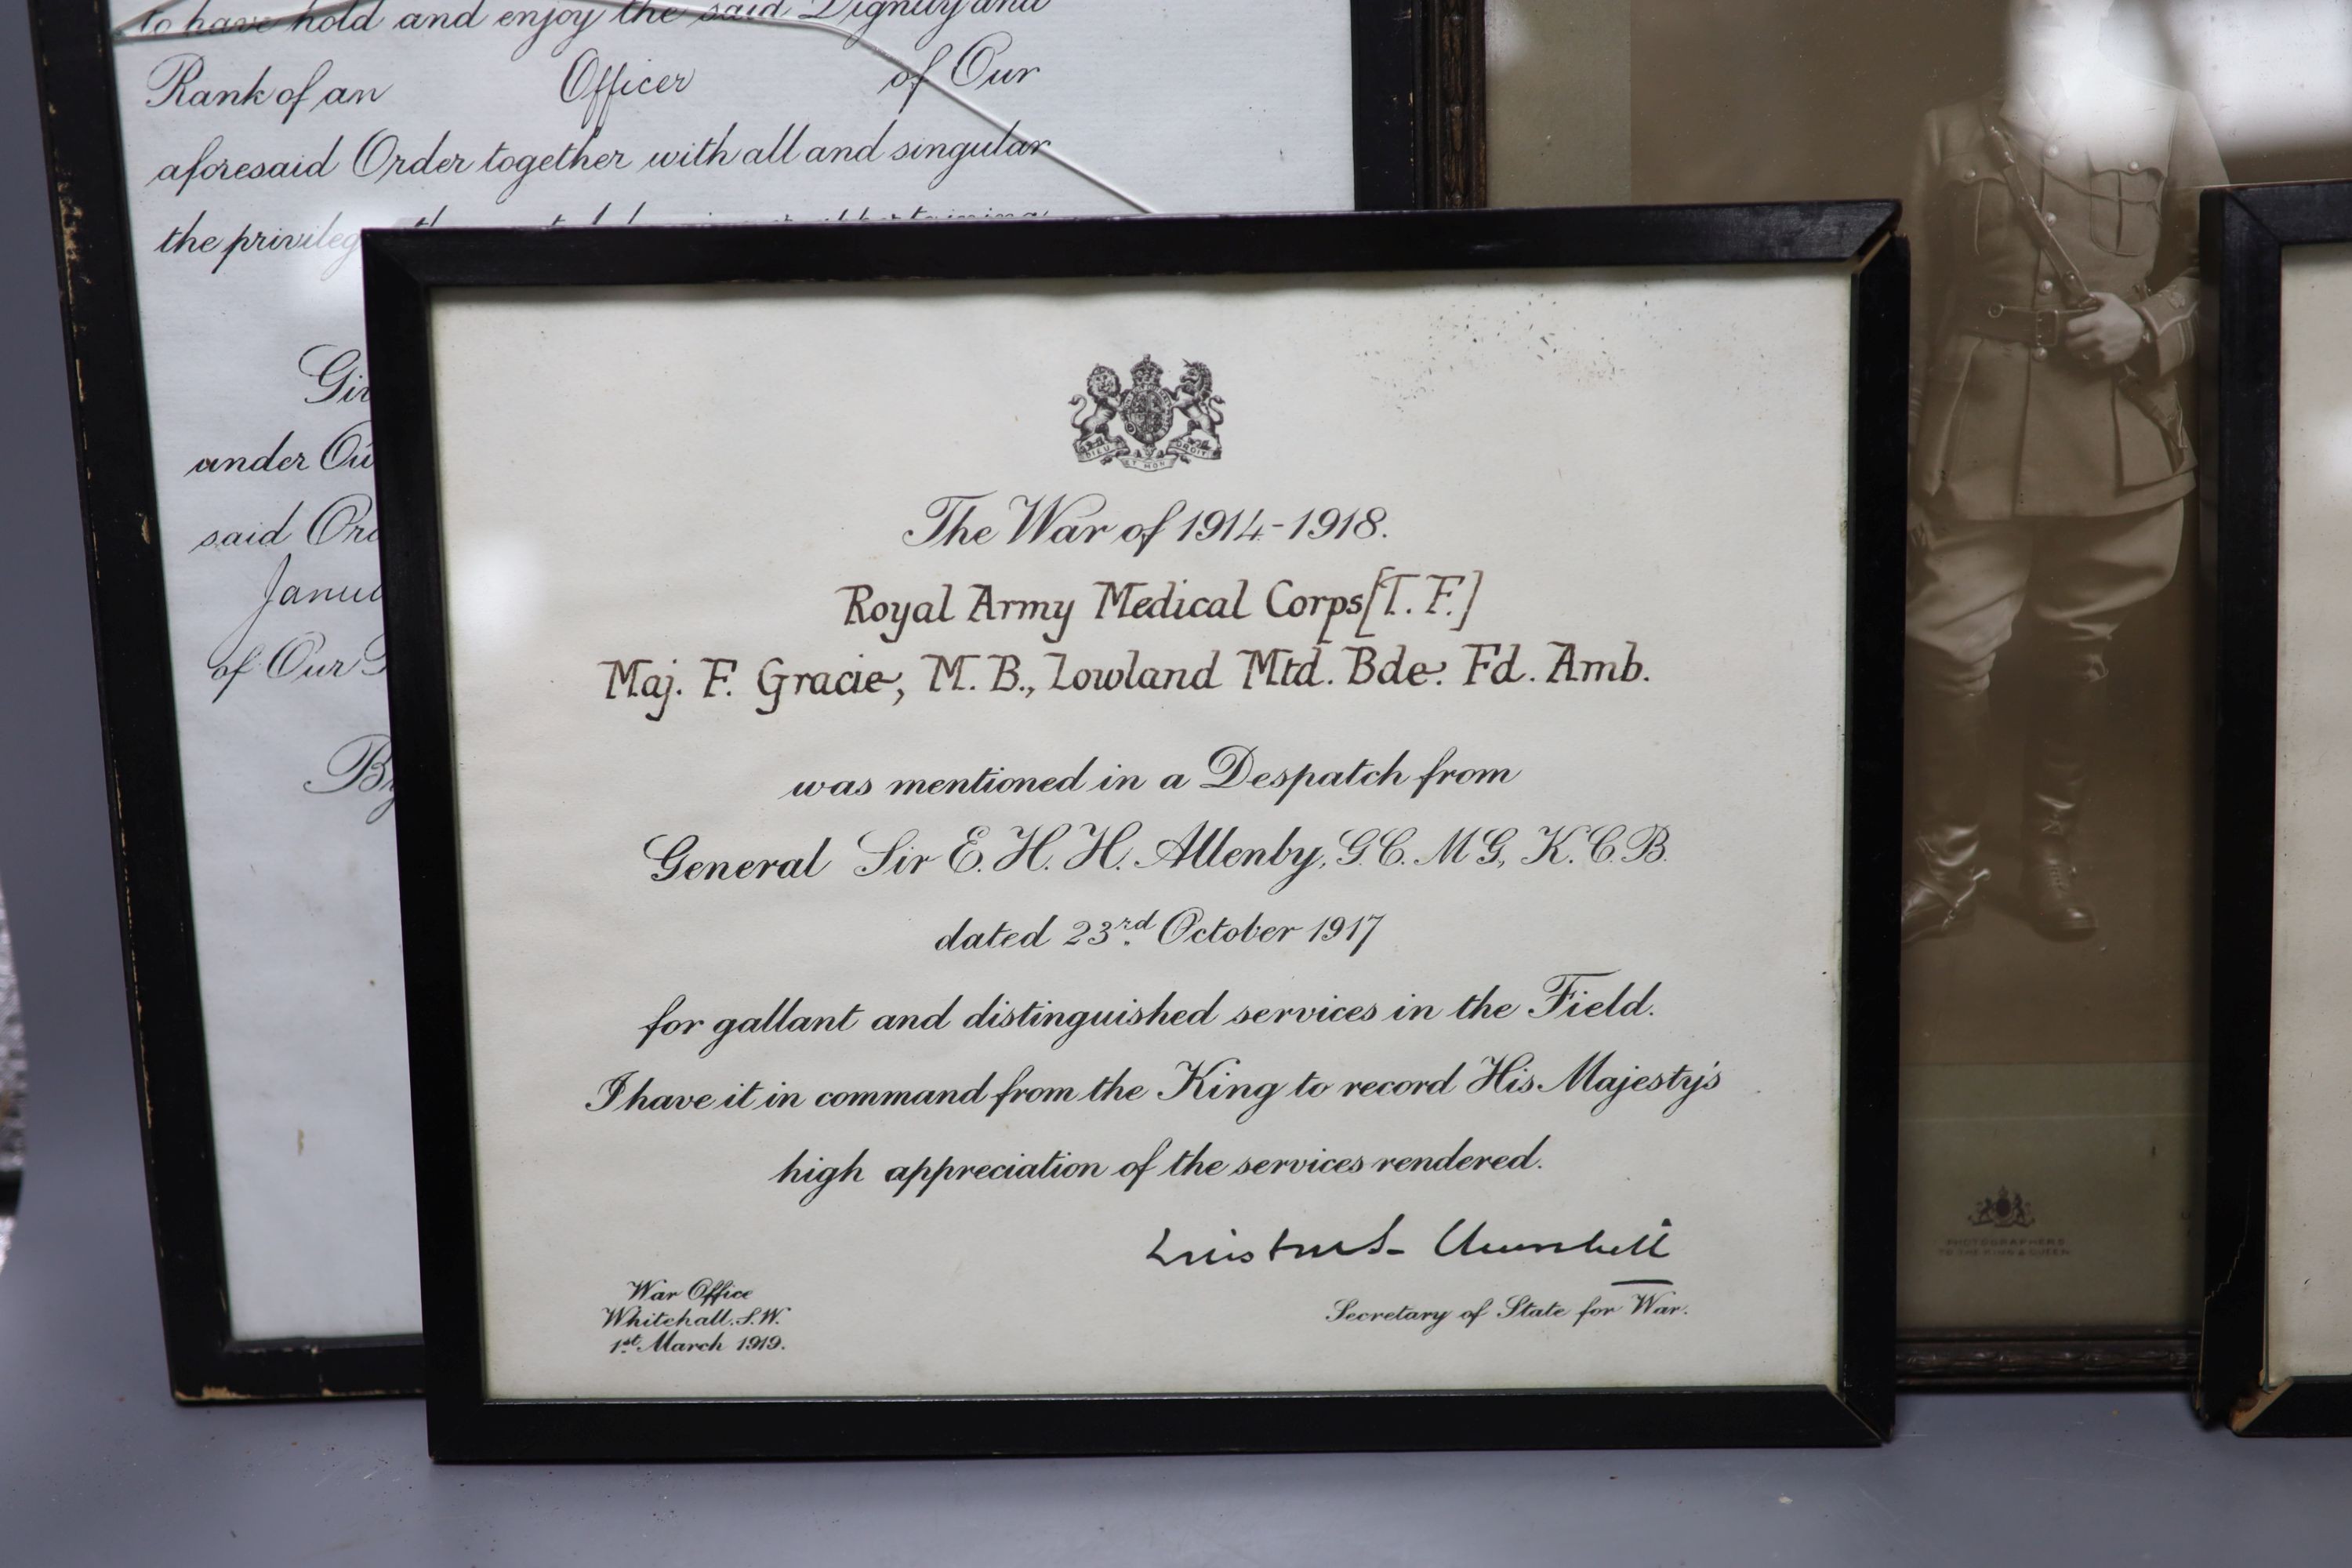 to have hold and enjoy the said Dignity and
Rank of an Officer of Our
aforesaid Order together with all and singular
the privileg
Giv
under Ou
said Ord
Janua
of Our
By
DIEU ET MON DROIT
The War of 1914-1918.
Royal Army Medical Corps [T. F.]
Maj. F. Gracie, M. B., Lowland Mtd. Bde. Fd. Amb.
was mentioned in a Despatch from
General Sir E. H. H. Allenby, G.C. M G, K.C.B.
dated 23rd October 1917
for gallant and distinguished services in the Field.
I have it in command from the King to record His Majesty's
high appreciation of the services rendered.
Winston S. Churchill
War Office
Whitehall. S.W.
1st March 1919.
Secretary of State for War.
PHOTOGRAPHERS
TO THE KING & QUEEN